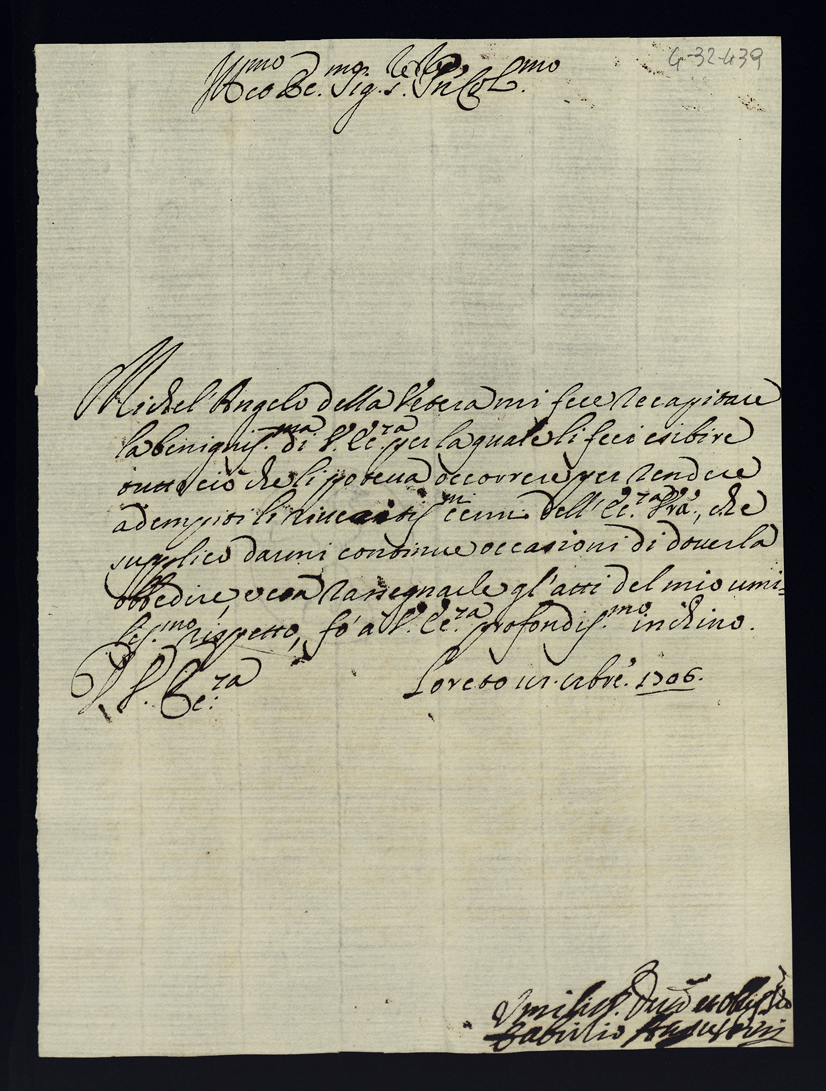 4-32-439
Ill.mo et Ecc.mo Sig.r Sig.r P.ron Col.mo
Michel'Angelo della Vetera mi fece recapitare
la benignis.ma di V. Ecc.za per la quale li feci esibire
tutto ciò che li poteva occorrere per rendere
adempiti li riveritis.mi cenni dell'Ecc.za V.ra, che
supplico darmi continue occasioni di doverla
obbedire, e con rassegnarle gl'atti del mio umi=
lis.mo rispetto, fò a V. Ecc.za profondis.mo inchino.
D. V. Ecc.za
Loreto 1706.
Umilis.